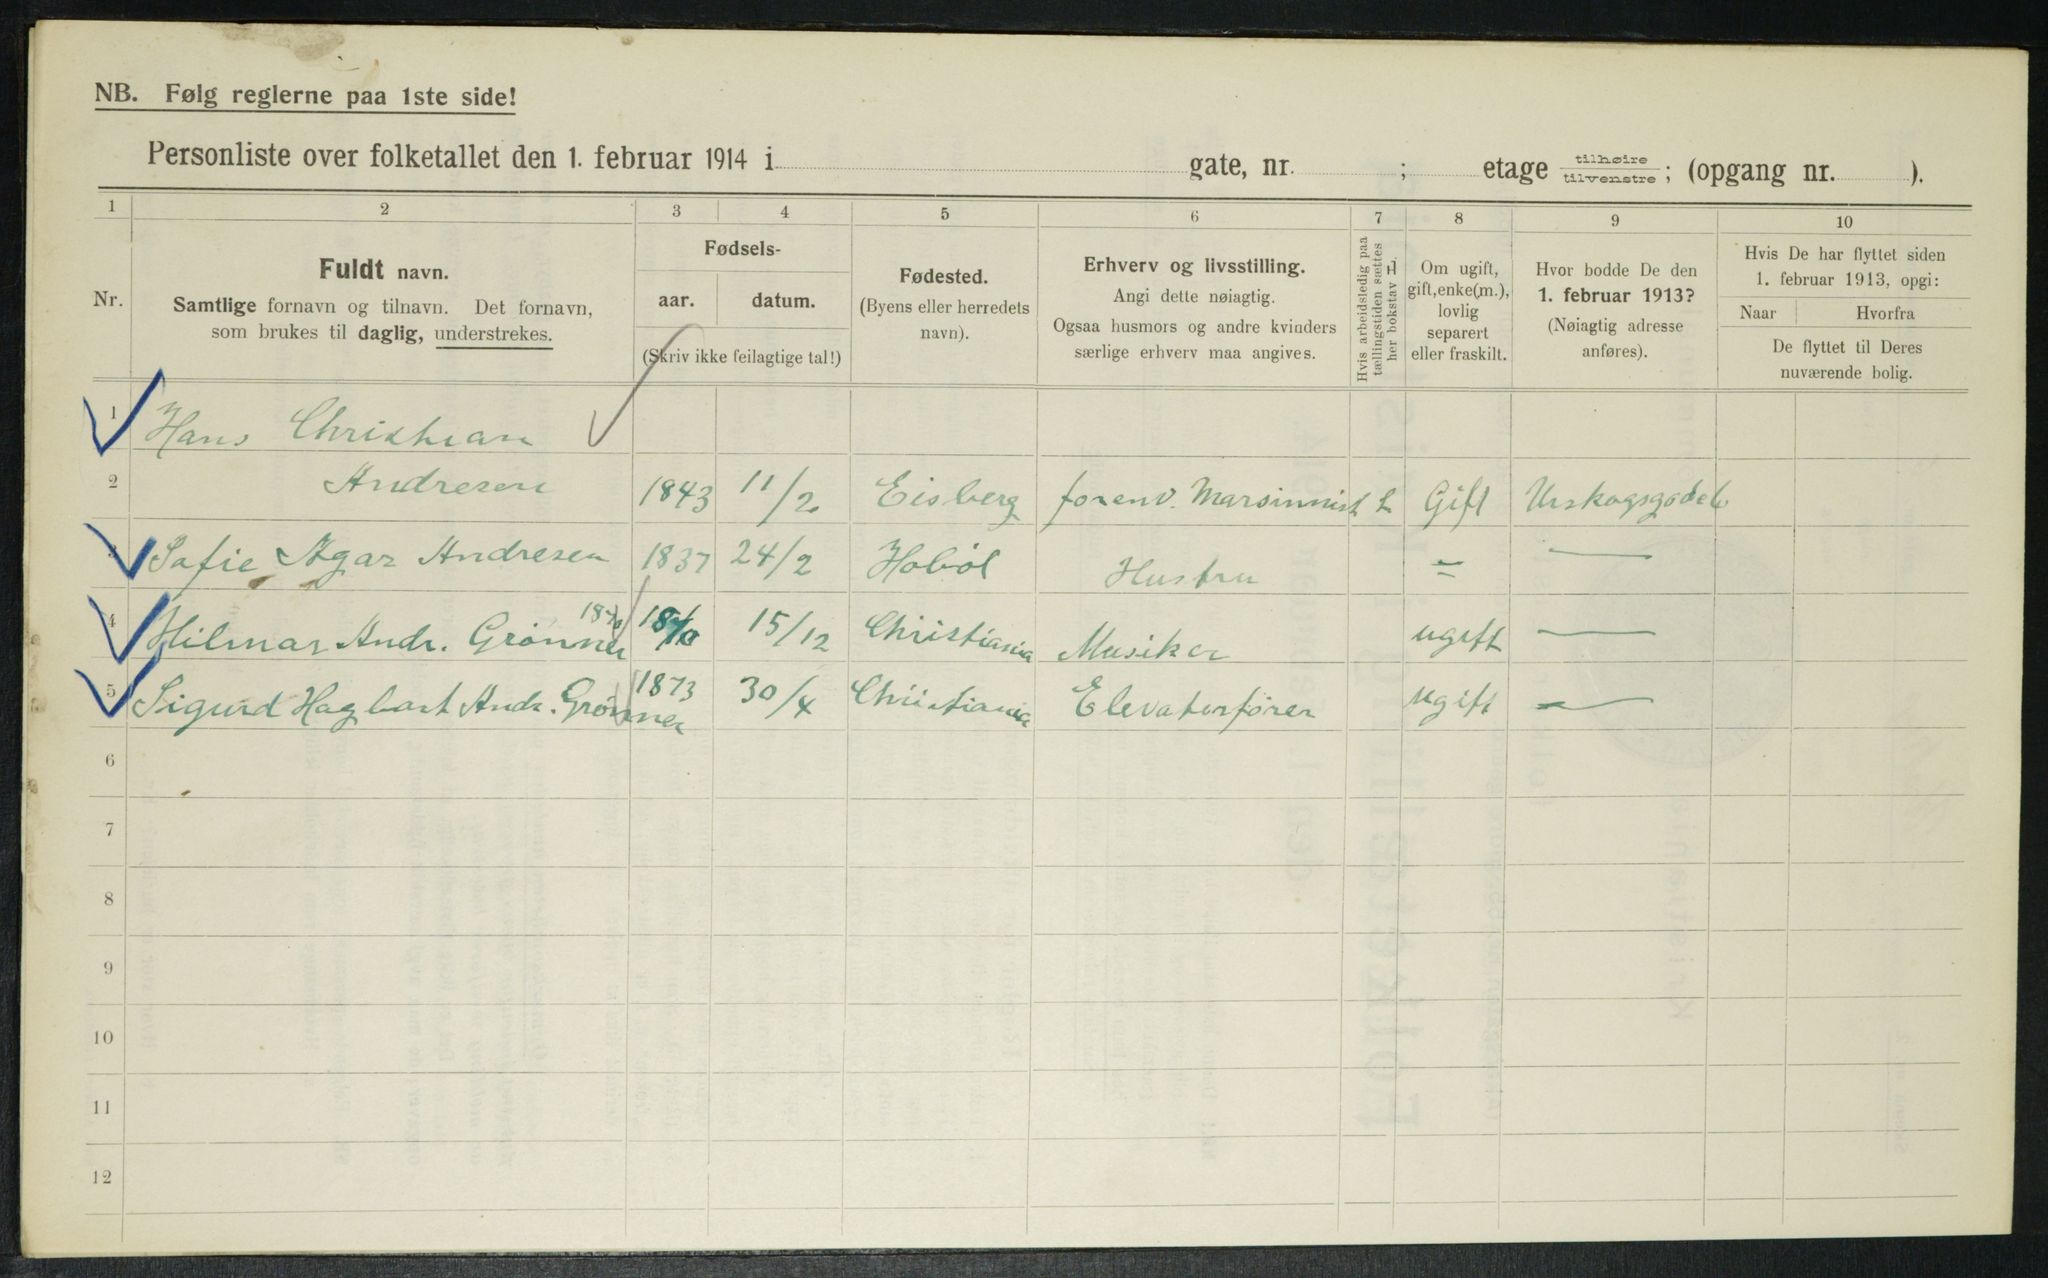 NB. Følg reglerne paa 1ste side!
Personliste over folketallet den 1. februar 1914 i gate, nr. ; etage tilhøire tilvenstre; (opgang nr. ).
1 2 3 4 5 6 7 8 9 10
Nr.
Fuldt navn.
Samtlige fornavn og tilnavn. Det fornavn,
som brukes til daglig, understrekes.
Fødsels-
aar. datum.
(Skriv ikke feilagtige tal!)
Fødested.
(Byens eller herredets
navn).
Erhverv og livsstilling.
Angi dette nøiagtig.
Ogsaa husmors og andre kvinders
særlige erhverv maa angives.
Hvis arbeidsledig paa
tællingstiden sættes
her bokstav L
Om ugift,
gift, enke(m.),
lovlig
separert
eller fraskilt.
Hvor bodde De den
1. februar 1913?
(Nøiagtig adresse
anføres).
Hvis De har flyttet siden
1. februar 1913, opgi:
Naar Hvorfra
De flyttet til Deres
nuværende bolig.
1 Hans Christian
2 Andresen 1843 11/2 Eisberg forenv. Marsinnist L Gift
3 Safie Agar Andresen 1837 24/2 Hobøl Hustru = —
4 Hilmar Andr. Grönner 1870 1870 15/12 Christiania Musiker ugift —
5 Sigurd Hagbart Andr. Grönner 1873 30/4 Christiania Elevatorfører ugift —
6
7
8
9
10
11
12